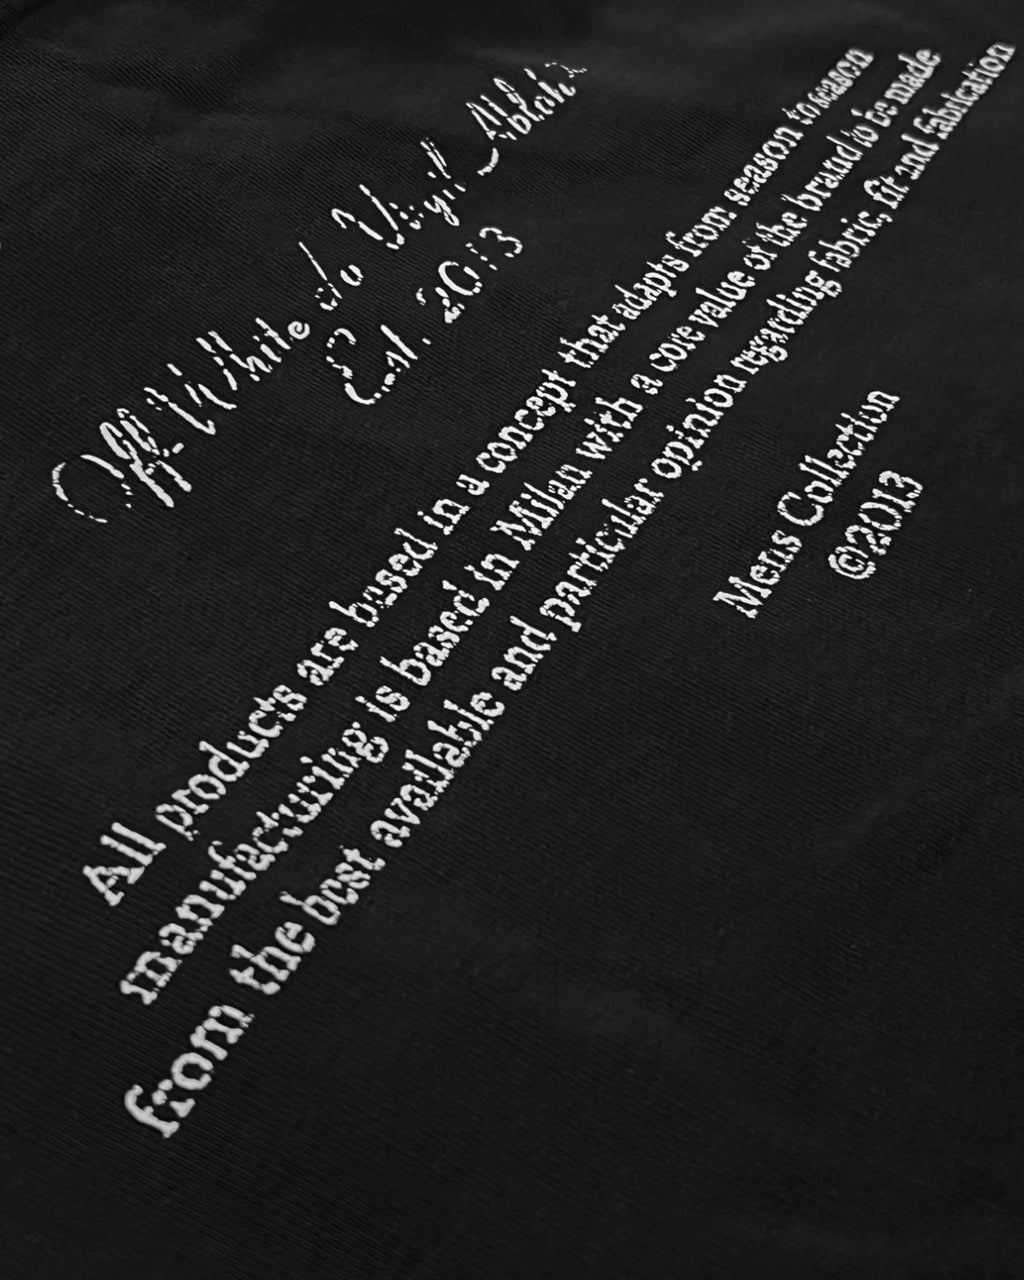 Off-White c/o Virgil Abloh
Est. 2013
All products are based in a concept that adapts from season to season
manufacturing is based in Milan with a core value of the brand to be made
from the best available and particular opinion regarding fabric, fit and fabrication
Mens Collection
©2013